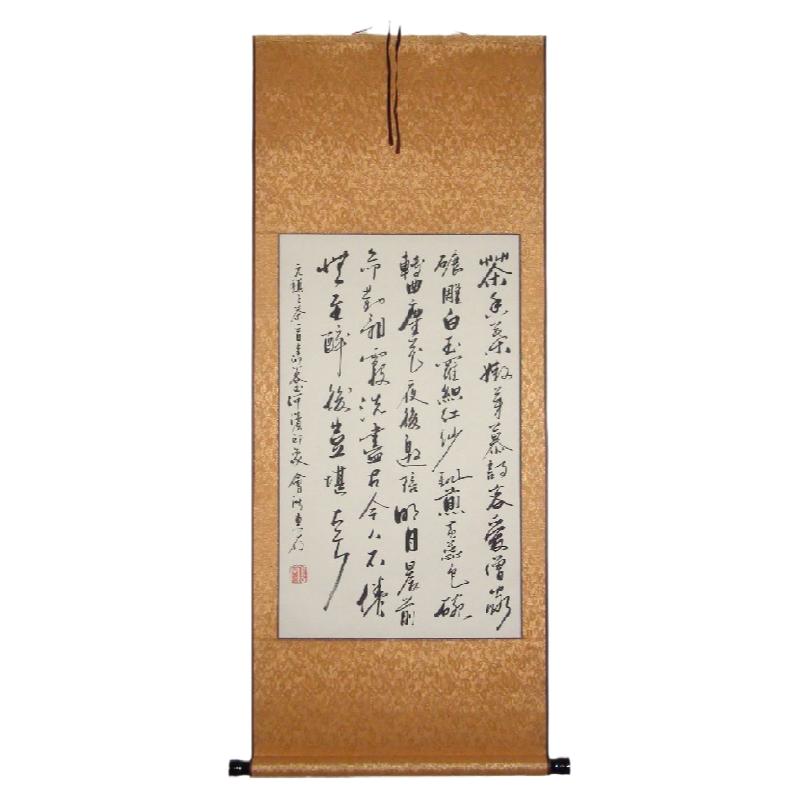 茶香葉嫩芽慕詩客愛僧家
碾雕白玉羅織紅紗銚煎黃蕊色碗
轉曲塵花夜後邀陪明月晨前
命對朝霞洗盡古今人不倦
將至醉後豈堪夸
元稹之茶一首